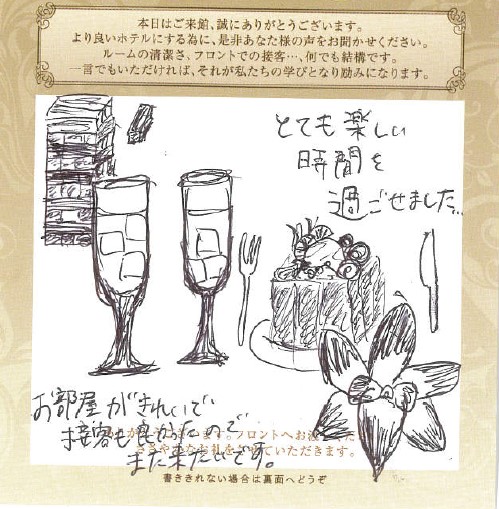 本日はご来館、誠にありがとうございます。
より良いホテルにする為に、是非あなた様の声をお聞かせください。
ルームの清潔さ、フロントでの接客…、何でも結構です。
一言でもいただければ、それが私たちの学びとなり励みになります。
とても楽しい
時間を
過ごせました…
お部屋がきれいで
接客も良かったので
また来たいです。
います。フロントへお
お礼を
せていただきます。
書ききれない場合は裏面へどうぞ